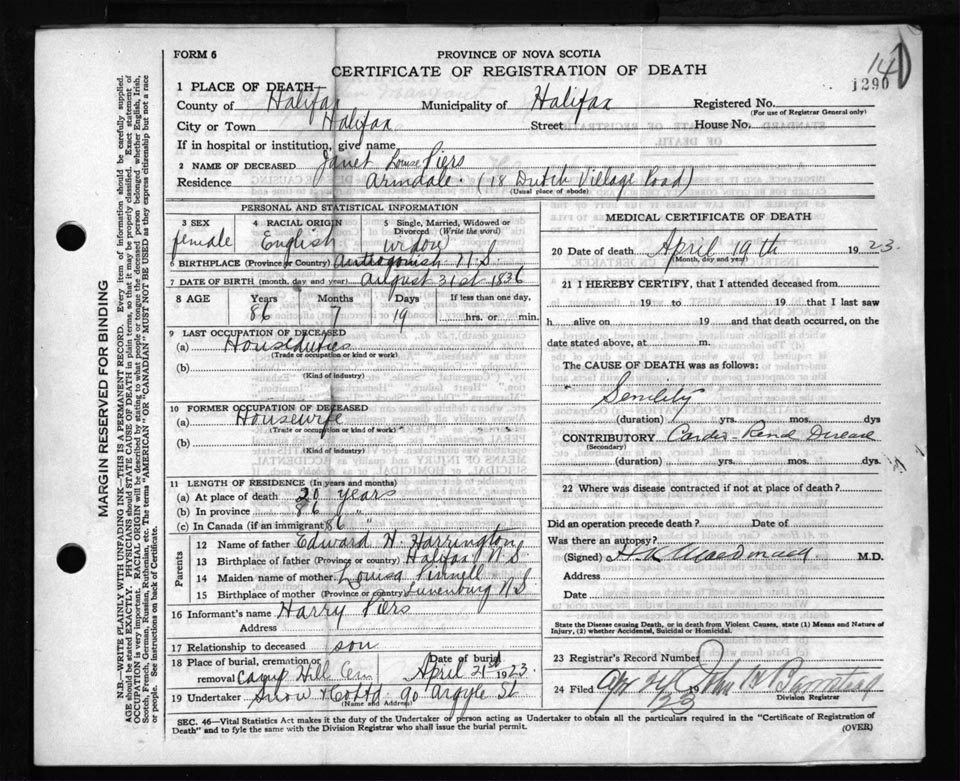 FORM 6
PROVINCE OF NOVA SCOTIA
CERTIFICATE OF REGISTRATION OF DEATH
14
1290
1 PLACE OF DEATH
County of Halifax Municipality of Halifax Registered No.
(For use of Registrar General only)
City or Town Halifax Street House No.
If in hospital or institution, give name
2 NAME OF DECEASED Janet Louise Piers
Residence Armdale. (18 Dutch Village Road)
(Usual place of abode)
PERSONAL AND STATISTICAL INFORMATION
3 SEX 4 RACIAL ORIGIN 5 Single, Married, Widowed or Divorced (Write the word)
female English widow
6 BIRTHPLACE (Province or Country) Antigonish N.S.
7 DATE OF BIRTH (month, day, and year) August 31st 1836
8 AGE Years Months Days If less than one day,
86 7 19 hrs. or min.
9 LAST OCCUPATION OF DECEASED
(a) Houseduties
(Trade or occupation or kind of work)
(b)
(Kind of industry)
10 FORMER OCCUPATION OF DECEASED
(a) Housewife
(Trade or occupation or kind of work)
(b)
(Kind of industry)
11 LENGTH OF RESIDENCE (In years and months)
(a) At place of death 20 years
(b) In province 86 "
(c) In Canada (if an immigrant) 86 "
Parents
12 Name of father Edward H. Harrington
13 Birthplace of father (Province or country) Halifax N S
14 Maiden name of mother Louisa
15 Birthplace of mother (Province or country) Lunenburg N S
16 Informant's name Harry Piers
Address
17 Relationship to deceased son
18 Place of burial, cremation or removal Camp Hill Cem Date of burial April 21st 1923.
19 Undertaker Snow & Co Ltd 90 Argyle St
(Name and Address)
MEDICAL CERTIFICATE OF DEATH
20 Date of death April 19th 1923.
(Month, day and year)
21 I HEREBY CERTIFY, that I attended deceased from
19 to 19 that I last saw
h alive on 19 and that death occurred, on the
date stated above, at m.
The CAUSE OF DEATH was as follows:
Senility
(duration) yrs. mos. dys
CONTRIBUTORY Cardio-Renal Disease
(Secondary)
(duration) yrs. mos. dys.
22 Where was disease contracted if not at place of death?
Did an operation precede death? Date of
Was there an autopsy?
(Signed) H. K. MacDonald M.D.
Address
Date
State the Disease causing Death, or in death from Violent Causes, state (1) Means and Nature of Injury, (2) whether Accidental, Suicidal or Homicidal.
23 Registrar's Record Number
24 Filed 19 23 John
Division Registrar
SEC. 46—Vital Statistics Act makes it the duty of the Undertaker or person acting as Undertaker to obtain all the particulars required in the "Certificate of Registration of Death" and to fyle the same with the Division Registrar who shall issue the burial permit.
(OVER)
MARGIN RESERVED FOR BINDING
N.B.—WRITE PLAINLY WITH UNFADING INK—THIS IS A PERMANENT RECORD. Every item of information should be carefully supplied.
AGE should be stated EXACTLY. PHYSICIANS should STATE CAUSE OF DEATH in plain terms, so that it may be properly classified. Exact statement of
OCCUPATION is very important. RACIAL ORIGIN will be described by stating to what people or tongue the deceased person belonged whether English, Irish,
Scotch, French, German, Russian, Ruthenian, etc. The terms "AMERICAN" OR "CANADIAN" MUST NOT BE USED as they express citizenship but not a race
or people. See instructions on back of Certificate.